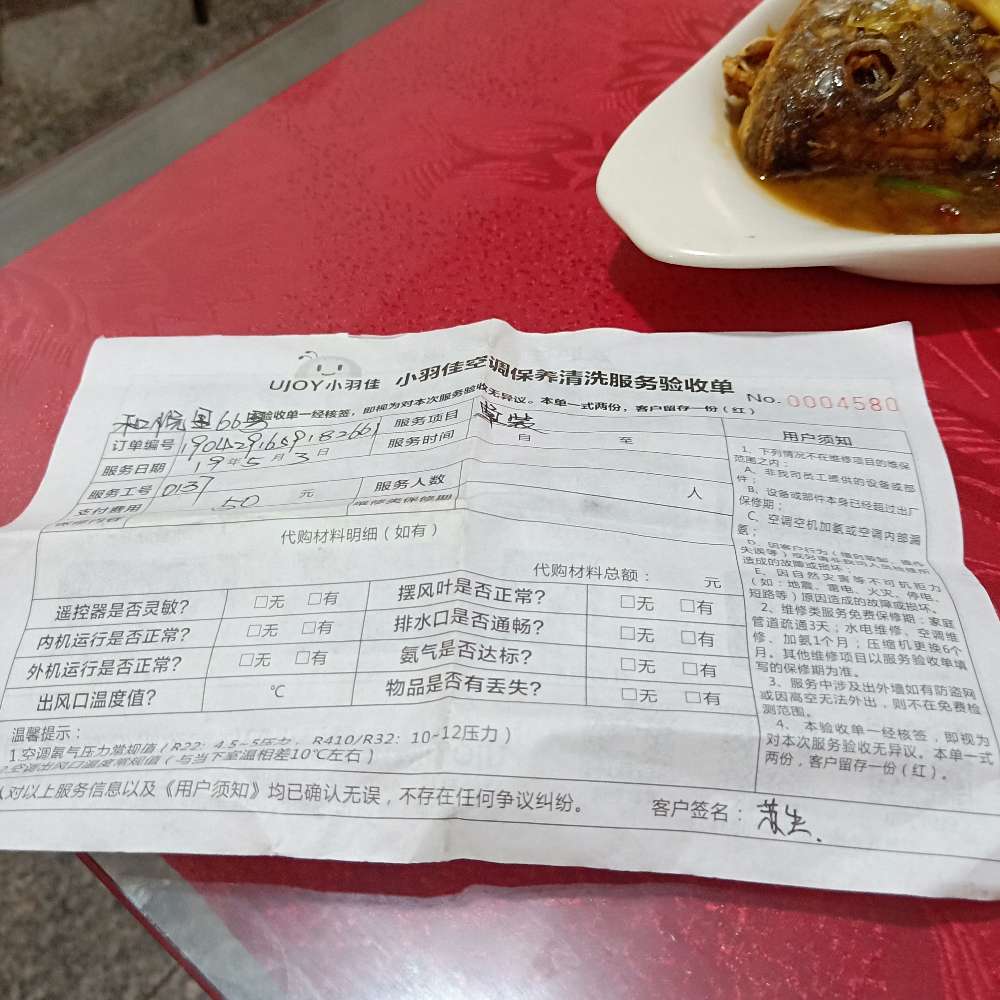 UJOY小羽佳 小羽佳空调保养清洗服务验收单
No. 0004580
验收单一经核签，即视为对本次服务验收无异议。本单一式两份，客户留存一份（红）
66号
订单编号
服务项目
服务日期 19年5月3日 服务时间 自 至
服务工号 0137 服务人数 人
支付费用 50 元 维修类保修期
维修内容
代购材料明细（如有）
代购材料总额： 元
遥控器是否灵敏？ □无 □有 摆风叶是否正常？ □无 □有
内机运行是否正常？ □无 □有 排水口是否通畅？ □无 □有
外机运行是否正常？ □无 □有 氨气是否达标？ □无 □有
出风口温度值？ ℃ 物品是否有丢失？ □无 □有
温馨提示：
1.空调氨气压力常规值（R22：4.5~5压力， R410/R32：10~12压力）
2.空调出风口温度常规值（与当下室温相差10℃左右）
人对以上服务信息以及《用户须知》均已确认无误，不存在任何争议纠纷。
客户签名：
用户须知
1、下列情况不在维修项目的维保
范围之内：
A、非我司员工提供的设备或部
件；
B、设备或部件本身已经超过出厂
保修期；
C、空调空机加氨或空调内部漏
氨；
造成的故障或损坏；
E、因自然灾害等不可抗拒力
（如：地震、雷电、火灾、停电、
短路等）原因造成的故障或损坏。
2、维修类服务免费保修期：家庭
管道疏通3天；水电维修、空调维
修、加氨1个月；压缩机更换6个
月。其他维修项目以服务验收单填
写的保修期为准。
3、服务中涉及出外墙如有防盗网
或因高空无法外出，则不在免费检
测范围。
4、本验收单一经核签，即视为
对本次服务验收无异议。本单一式
两份，客户留存一份（红）。